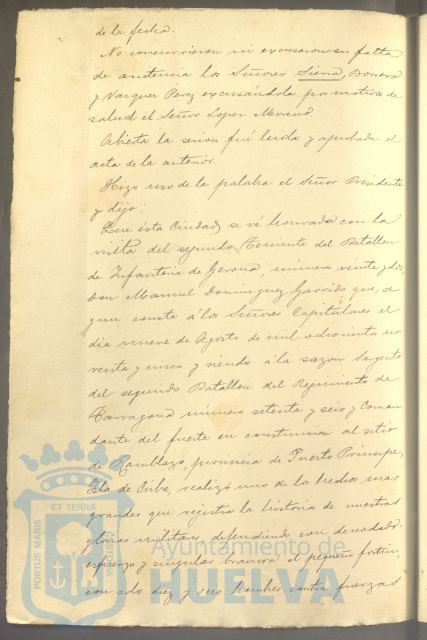 de la fecha.
No concurrieron ni excusaron su falta
de asistencia los Señores Siena, Borrero
y Vazquez Perez excusándola por motivos de
salud el Señor Lopez Moreno.
Abierta la sesion fué leida y aprobada el
acta de la anterior.
Hizo uso de la palabra el Señor Presidente
y dijo:
Que ésta Ciudad se vé honrada con la
visita del segundo Teniente del Batallon
de Infanteria de Gerona, número veinte y dos,
Don Manuel Dominguez Garrido que, se
gun consta á los Señores Capitulares el
dia nueve de Agosto de mil ochocientos no
venta y cinco y siendo á la sazon Sargento
del segundo Batallon del Regimiento de
Tarragona número setenta y seis y Coman
dante del fuerte en construccion al sitio
de Ramblazo, provincia de Puerto Principe,
Isla de Cuba, realizó uno de los hechos mas
grandes que registra la historia de nuestras
glorias militares defendiendo con denodado
esfuerzo y singular bravura el pequeño fortin,
con solo diez y seis hombres contra fuerzas
PORTUS MARIS
ET TERRA
CUSTODIA
Ayuntamiento de
HUELVA